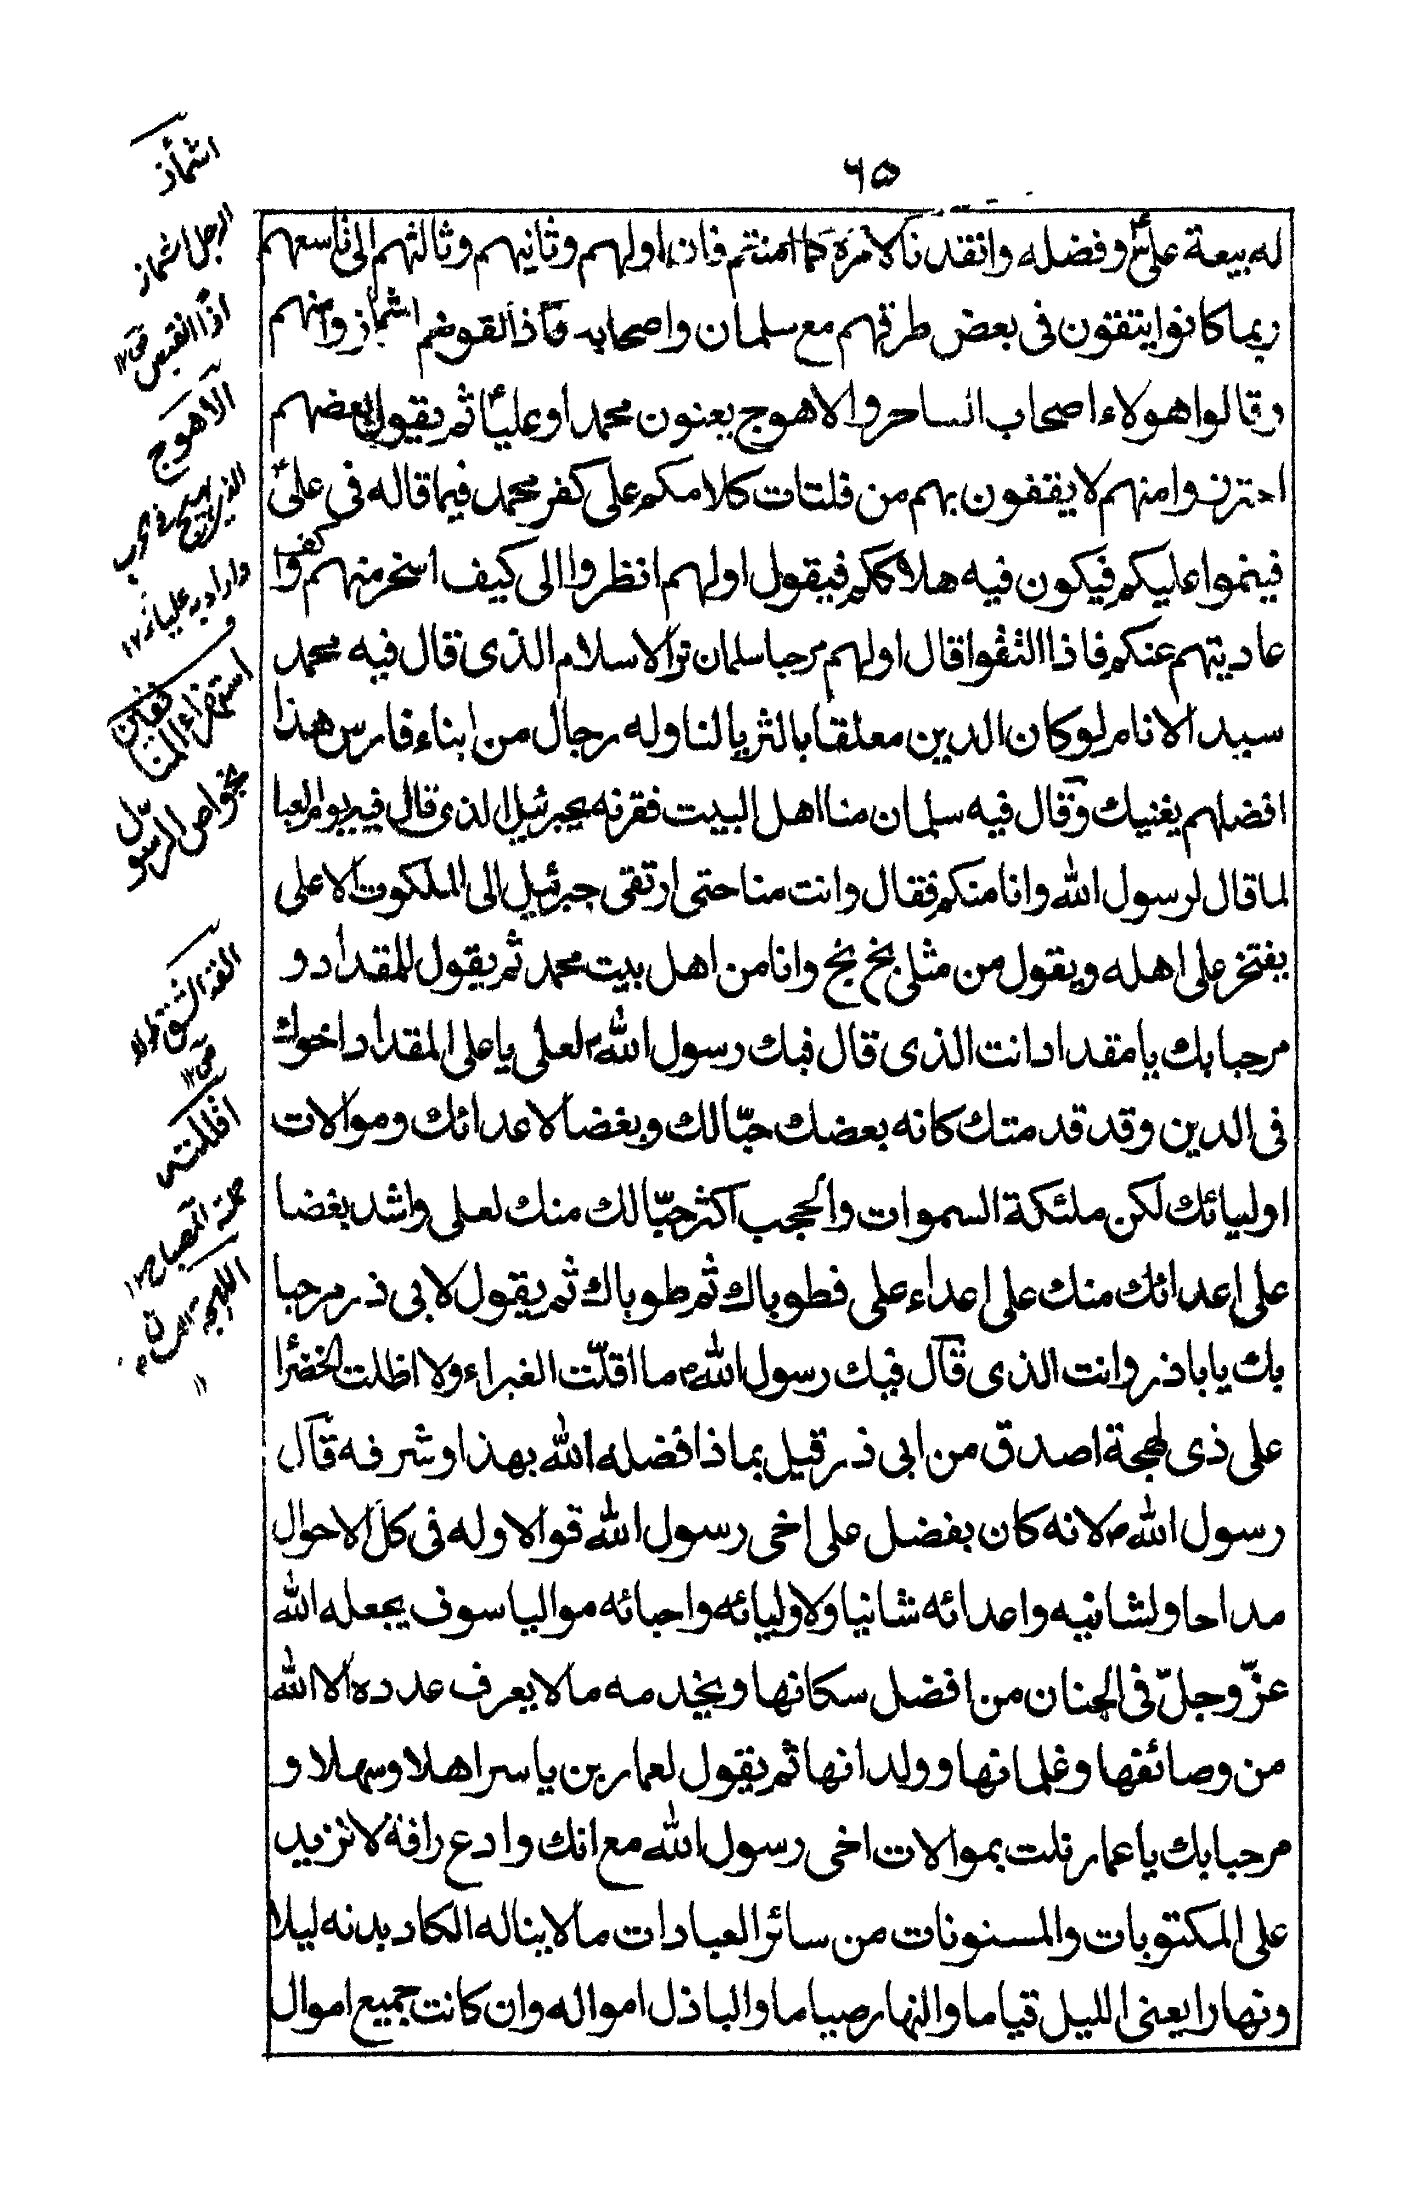 ٦٥
له بيعة علىّ وفضله وانقدنا لامره كما امنتم فان اولهم وثانيهم وثالثهم الى تاسعهم
ربما كانوا يتفقون فى بعض طرقهم مع سلمان واصحابه فاذا لقوهم اشمأزوا منهم
وقالوا هولاء اصحاب الساحر والاهوج يعنون محمدا وعليا ثم يقول بعضهم
احترزوا منهم لا يقفون بهم من فلتات كلامكم على كفر محمد فيما قاله فى علىّ
فينموا عليكم فيكون فيه هلاككم فيقول اولهم انظروا الى كيف اسخر منهم وا كف
عاديتهم عنكم فاذا التقوا قال اولهم مرحبا سلمان بن الاسلام الذى قال فيه محمد
سيد الانام لو كان الدين معلقا بالثريا لناوله رجال من ابناء فارس هذا
افضلهم يعنيك وقال فيه سلمان منا اهل البيت فقرنه بجبرئيل الذى قال فيه يوم العبا
لما قال لرسول الله وانا منكم فقال وانت منا حتى ارتقى جبرئيل الى الملكوت الاعلى
يفتخر على اهله ويقول من مثلى بخ بخ وانا من اهل بيت محمد ثم يقول للمقداد و
مرحبا بك يا مقداد انت الذى قال فيك رسول الله لعلى يا على المقداد اخوك
فى الدين وقد قد منك كانه بعضك حبّا لك وبغضا لاعدائك وموالات
اوليائك لكن ملئكة السموات والحجب اكثر حبّا لك منك لعلى واشد بغضا
على اعدائك منك على اعداء على فطوباك ثم طوباك ثم يقول لابى ذر مرحبا
بك يا باذر وانت الذى قال فيك رسول الله ما اقلّت الغبراء ولا اظلت الخضرا
على ذى لهجة اصدق من ابى ذر قيل بماذا فضله الله بهذا وشرفه قال
رسول الله لانه كان بفضل على اخى رسول الله قوالا وله فى كل الاحوال
مداحا ولشانيه واعدائه شانيا ولاوليائه واحبائه مواليا سوف يجعله الله
عزّ وجلّ فى الجنان من افضل سكانها ويخدمه ما لا يعرف عدده الا الله
من وصائفها وغلمانها وولدانها ثم يقول لعمار بن ياسر اهلا وسهلا و
مرحبا بك يا عمار نلت بموالات اخى رسول الله مع انك وادع رافة لا تزيد
على المكتوبات والمسنونات من سائر العبادات ما لا يناله الكاد بدنه ليلا
ونهارا يعنى الليل قياما والنهار صياما والباذل امواله وان كانت جميع اموال
اشمأز
الرجل اشماز
اذا انقبض ق ١٢
الاهوج
الذى يهيج فى الحرب
واراد به عليا ١٢
استهزاء المنافقين
بخواص الرسول
ص ١٢
اقلت
حملته المصباح ١٢
اللهجة اللسان